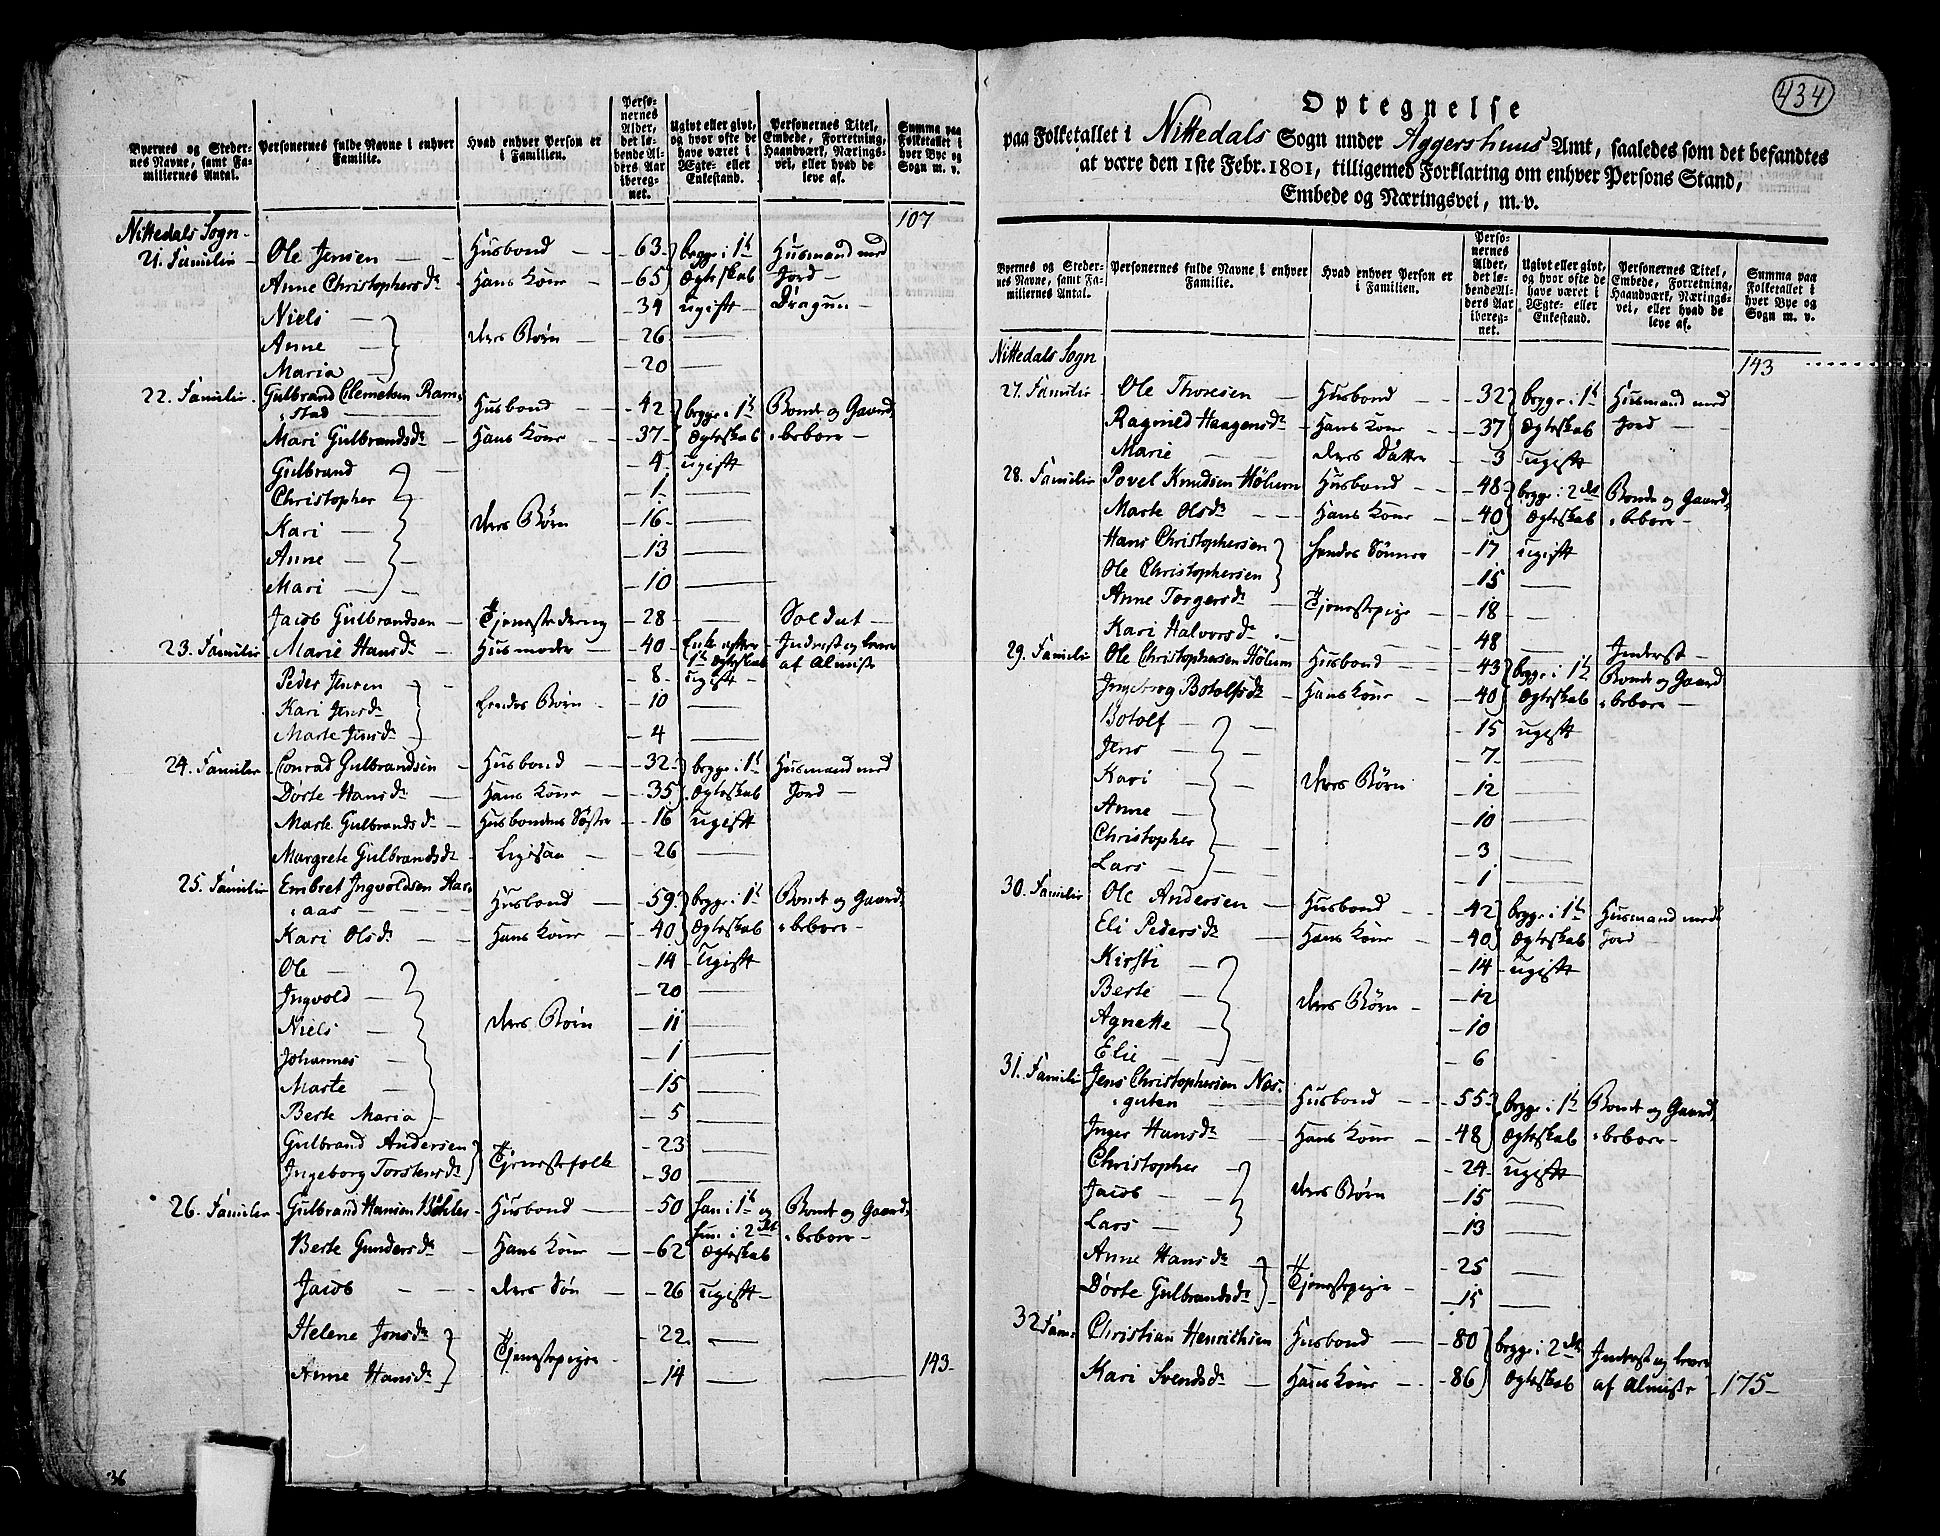 Byernes og Steder-
nes Navne, samt Fa-
miliernes Antal.
Personernes fulde Navne i enhver
Familie.
Hvad enhver Person er
i Familien.
Perso-
nernes
Alder,
det lø-
bende Al-
ders Aar
ibereg-
net.
Ugivt eller givt,
og hvor ofte de
have været i
Ægte- eller
Enkestand.
Personernes Titel,
Embede, Forretning,
Haandværk, Nærings-
vei, eller hvad de
leve af.
Summa paa
Folketallet i
hver Bye og
Sogn m. v.
Nittedals Sogn 107
21. Familie Ole Jensen Husbond 63 begge i 1te Husmand med
Anne Christophersdr Hans Kone 65 Ægteskab Jord
Niels 34 ugift Dragun
Anne deres Børn 26
Maria 20
22. Familie Gulbrand Clemetsen Ram-
stad Husbond 42 begge i 1te Bonde og Gaard-
Mari Gulbrandsdr Hans Kone 37 Ægteskab beboere
Gulbrand 4 ugift
Christopher 1
Kari deres Børn 16
Anne 13
Mari 10
Jacob Gulbrandsen Tjenestedreng 28 Soldat
23. Familie Marie Hansdr Husmoder 40 Enke efter Inderst og lever
1te Ægteskab af Almisse
Peder Jensen 8 ugift
Kari Jensdr hendes Børn 10
Marte Jensdr 4
24. Familie Conrad Gulbrandsen Husbond 32 begge i 1te Husmand med
Dorte Hansdr Hans Kone 35 Ægteskab Jord
Marte Gulbrandsdr Husbondens Søster 16 ugift
Margrete Gulbrandsdr Ligesaa 26
25. Familie Embret Ingvoldsen Aar-
aas Husbond 59 begge i 1te Bonde og Gaard-
Kari Olsdr Hans Kone 40 Ægteskab beboere
Ole 14 Ugift
Ingvold 20
Niels deres Børn 11
Johannes 1
Marte 15
Berte Maria 5
Gulbrand Andersen 23
Ingeborg Torstensdr Tjenestefolk 30
26. Familie Gulbrand Hansen Bøhler Husbond 50 han i 1te og Bonde og Gaard-
hun i 2det
Berte Gundersdr Hans Kone 62 Ægteskab beboere
Jacob deres Søn 26 ugift
Helene Jonsdr 22
Tjenestepiger
Anne Hansdr 14 143
36
434
Optegnelse
paa Folketallet i Nittedals Sogn under Aggershuus Amt, saaledes som det befandtes
at være den 1ste Febr. 1801, tilligemed Forklaring om enhver Persons Stand,
Embede og Næringsvei, m. v.
Byernes og Steder-
nes Navne, samt Fa-
miliernes Antal.
Personernes fulde Navne i enhver
Familie.
Hvad enhver Person er
i Familien.
Perso-
nernes
Alder,
det lø-
bende Al-
ders Aar
ibereg-
net.
Ugivt eller givt,
og hvor ofte de
have været i
Ægte- eller
Enkestand.
Personernes Titel,
Embede, Forretning,
Haandværk, Nærings-
vei, eller hvad de
leve af.
Summa paa
Folketallet i
hver Bye og
Sogn m. v.
Nittedals Sogn 143
27. Familie Ole Thoresen Husbond 32 begge i 1te Husmand med
Ragnild Haagensdr Hans Kone 37 Ægteskab Jord
Marie deres Datter 3 ugift
28. Familie Povel Knudsen Hølum Husbond 48 begge i 2det Bonde og Gaard-
Marte Olsdr Hans Kone 40 Ægteskab beboere
Hans Christophersen hendes Sønner 17 ugift
Ole Christophersen 15
Anne Torgersdr Tjenestepige 18
Kari Halvorsdr 48 Inderst
29. Familie Ole Christophersen Hølum Husbond 43 begge i 1te Bonde og Gaard
Ingeborg Botolfsdr Hans Kone 40 Ægteskab beboere
Botolf 15 ugift
Jens 7
Kari deres Børn 12
Anne 10
Christopher 3
Lars 1
30. Familie Ole Andersen Husbond 42 begge i 1te Husmand med
Eli Pedersdr Hans Kone 40 Ægteskab Jord
Kirsti 14 ugift
Berte deres Børn 12
Agnette 10
Elie 6
31. Familie Jens Christophersen Nas-
guten Husbond 55 begge i 1te Bonde og Gaard-
Inger Hansdr Hans Kone 48 Ægteskab beboere
Christopher 24 ugift
Jacob deres Børn 15
Lars 13
Anne Hansdr 25
Tjenestepiger
Dorte Gulbrandsdr 15
32 Fam. Christian Henrichsen Husbond 80 begge i 2det Inderst og lever
Kari Svendsdr Hans Kone 86 Ægteskab af Almisse 175